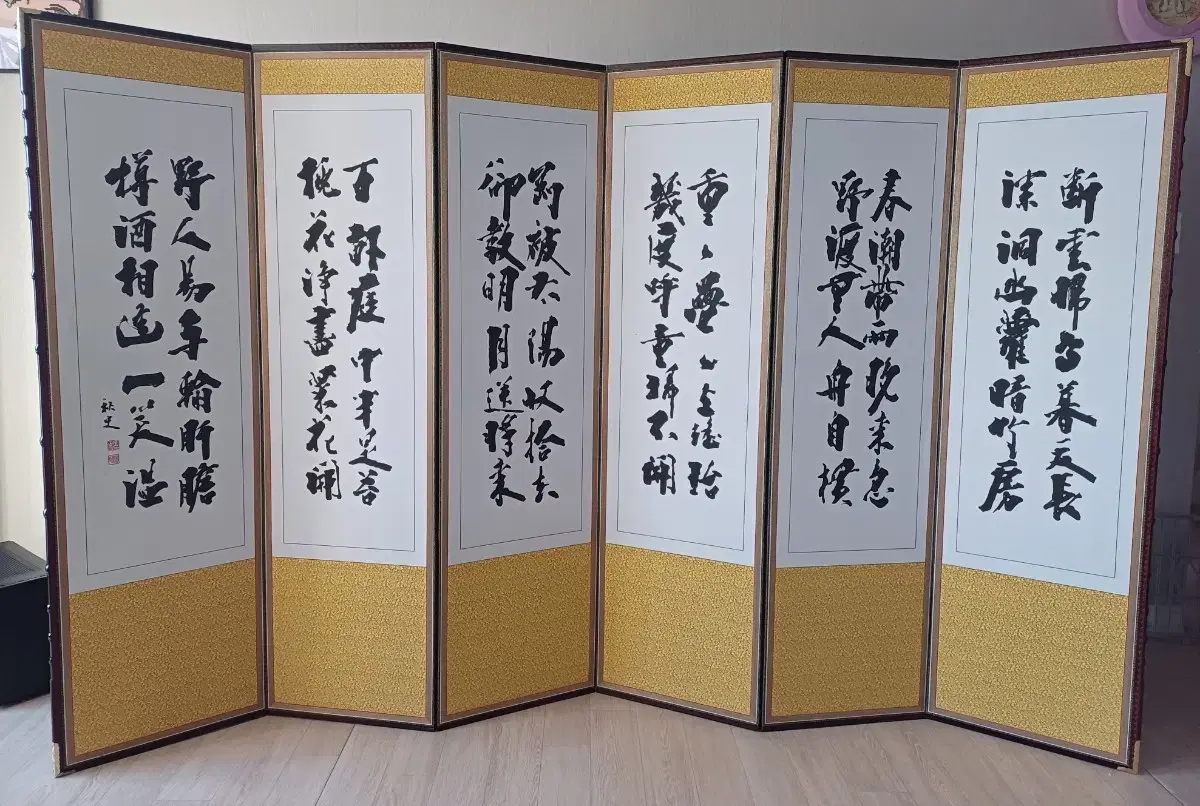 斷雲歸鳥暮天長
深洞幽蘿暗竹房
春潮帶雨晚來急
野渡無人舟自橫
重〻疊〻上瑤臺
幾度呼童掃不開
剛被太陽收拾去
却教明月送將來
百畝庭中半是苔
桃花淨盡菜花開
野人易與輸肝膽
樽酒相逢一笑溫
秋史